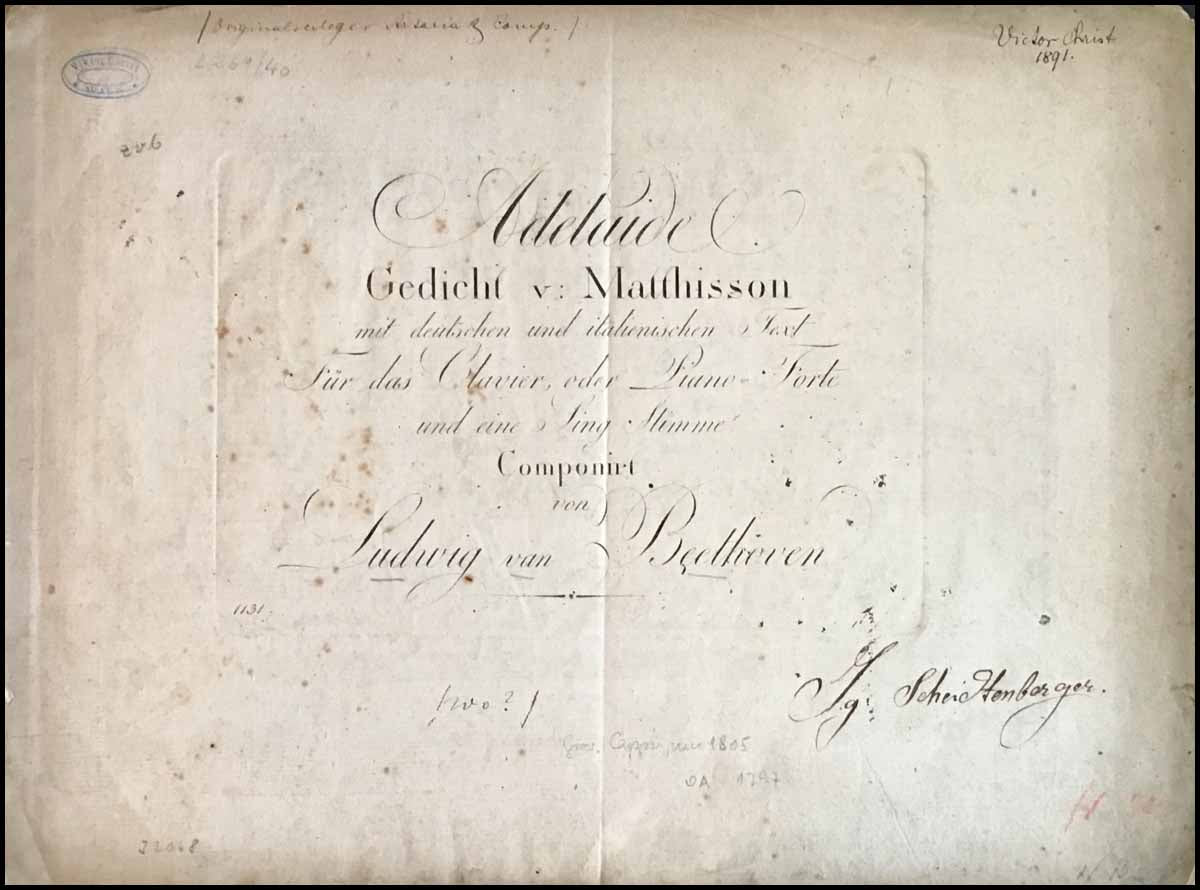 / Originalverleger Artaria & Comp. /
Victor Christ
1891.
Adelaide
Gedicht v: Matthisson
mit deutschen und italienischen Text
Für das Clavier, oder Piano-Forte
und eine Sing Stimme
Componirt
von
Ludwig van Beethoven
1131.
Ig: Scheidtenberger.
/ wo? /
1805
OA 1797